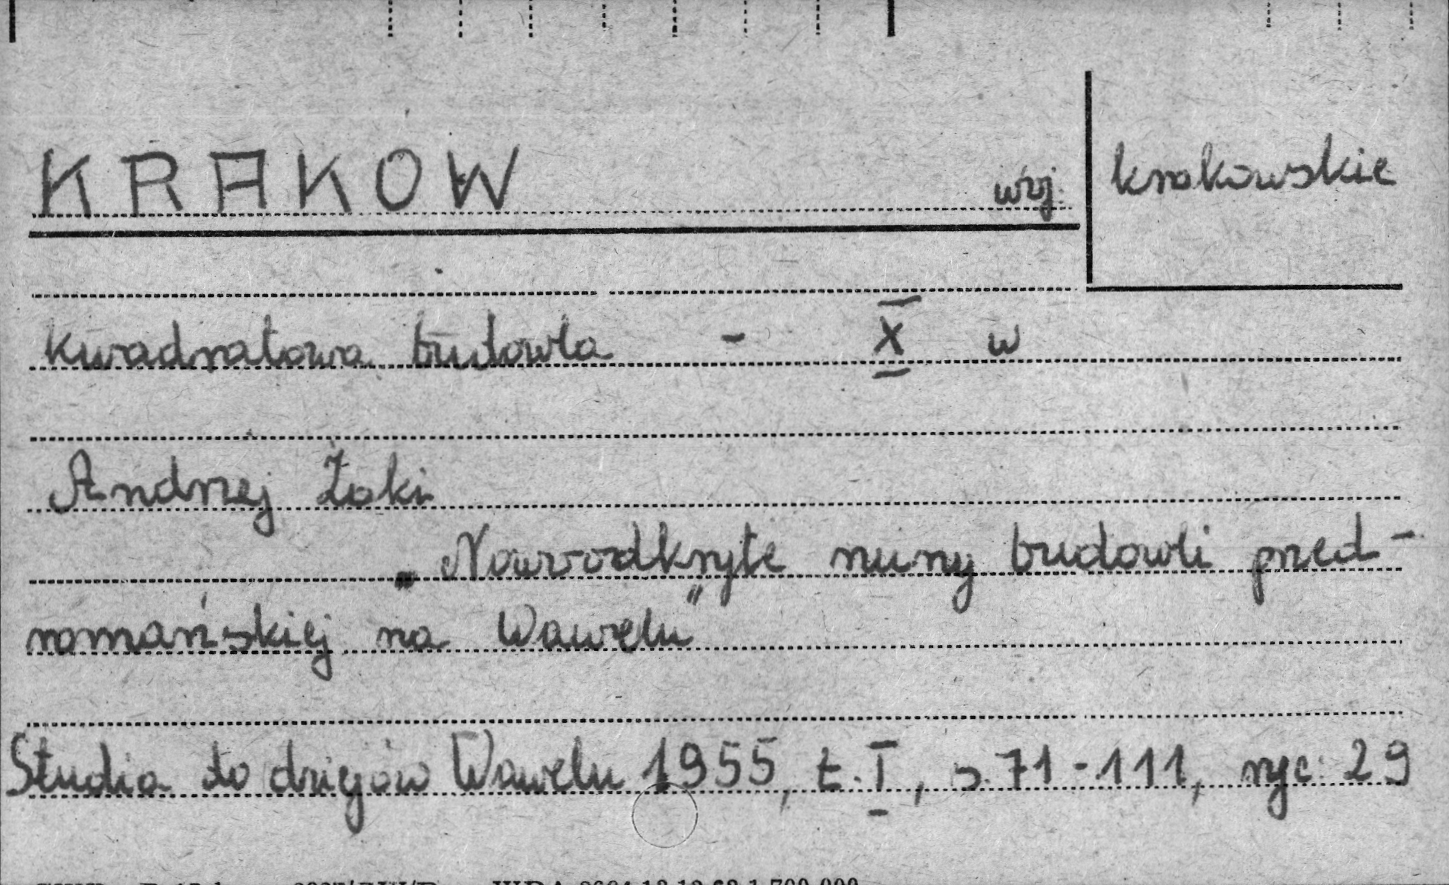 KRAKOW woj. krakowskie
kwadratowa budowla - X w
Andrzej Żaki
„Nowoodkryte ruiny budowli przed-
romańskiej na Wawelu"
Studia do dziejów Wawelu 1955, t. I, s. 71-111, ryc. 29